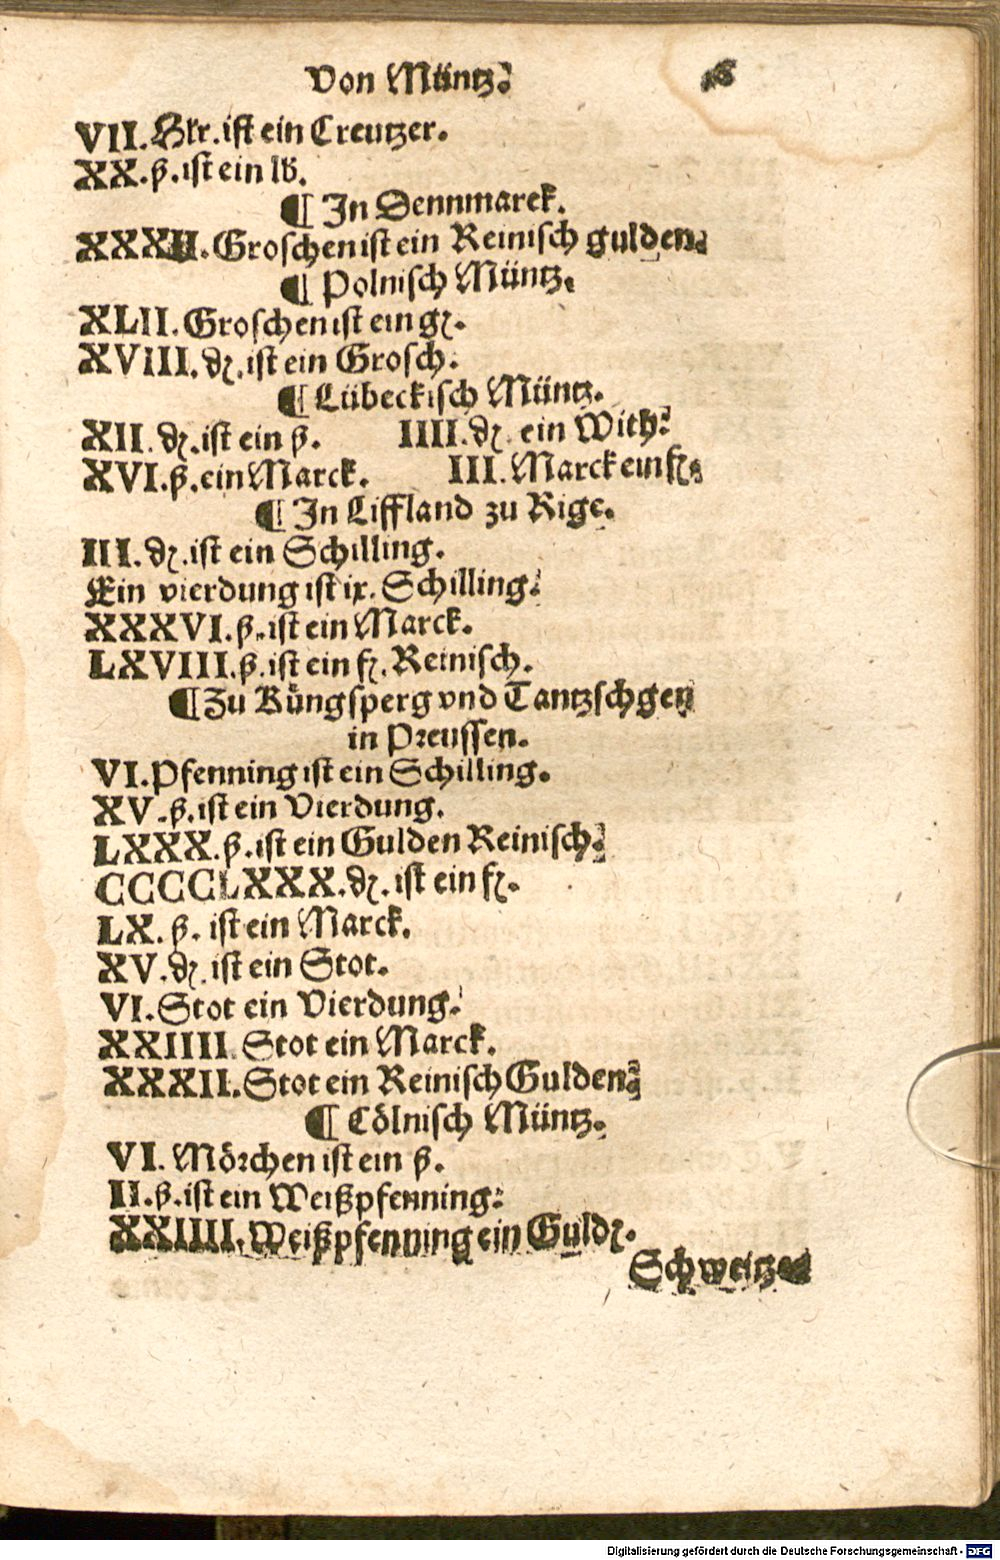 Von Müntz.
VII. Hlr. ist ein Creutzer.
XX. ß. ist ein lb.
¶ In Dennmarck.
XXXII. Groschen ist ein Reinisch gulden.
¶ Polnisch Müntz.
XLII. Groschen ist ein gꝛ.
XVIII. dꝛ. ist ein Grosch.
¶ Lübeckisch Müntz.
XII. dꝛ. ist ein ß. IIII. dꝛ. ein With.
XVI. ß. ein Marck. III. Marck ein fꝛ.
¶ In Liffland zu Rige.
III. dꝛ. ist ein Schilling.
Ein vierdung ist ix. Schilling.
XXXVI. ß. ist ein Marck.
LXVIII. ß. ist ein fꝛ. Reinisch.
¶ Zu Küngsperg vnd Tantzschgen
in Preussen.
VI. Pfenning ist ein Schilling.
XV. ß. ist ein Vierdung.
LXXX. ß. ist ein Gulden Reinisch.
CCCCLXXX. dꝛ. ist ein fꝛ.
LX. ß. ist ein Marck.
XV. dꝛ. ist ein Stot.
VI. Stot ein Vierdung.
XXIIII. Stot ein Marck.
XXXII. Stot ein Reinisch Gulden.
¶ Cölnisch Müntz.
VI. Mörchen ist ein ß.
II. ß. ist ein Weißpfenning.
XXIIII. Weißpfenning ein Guldꝛ.
Digitalisierung gefördert durch die Deutsche Forschungsgemeinschaft - DFG